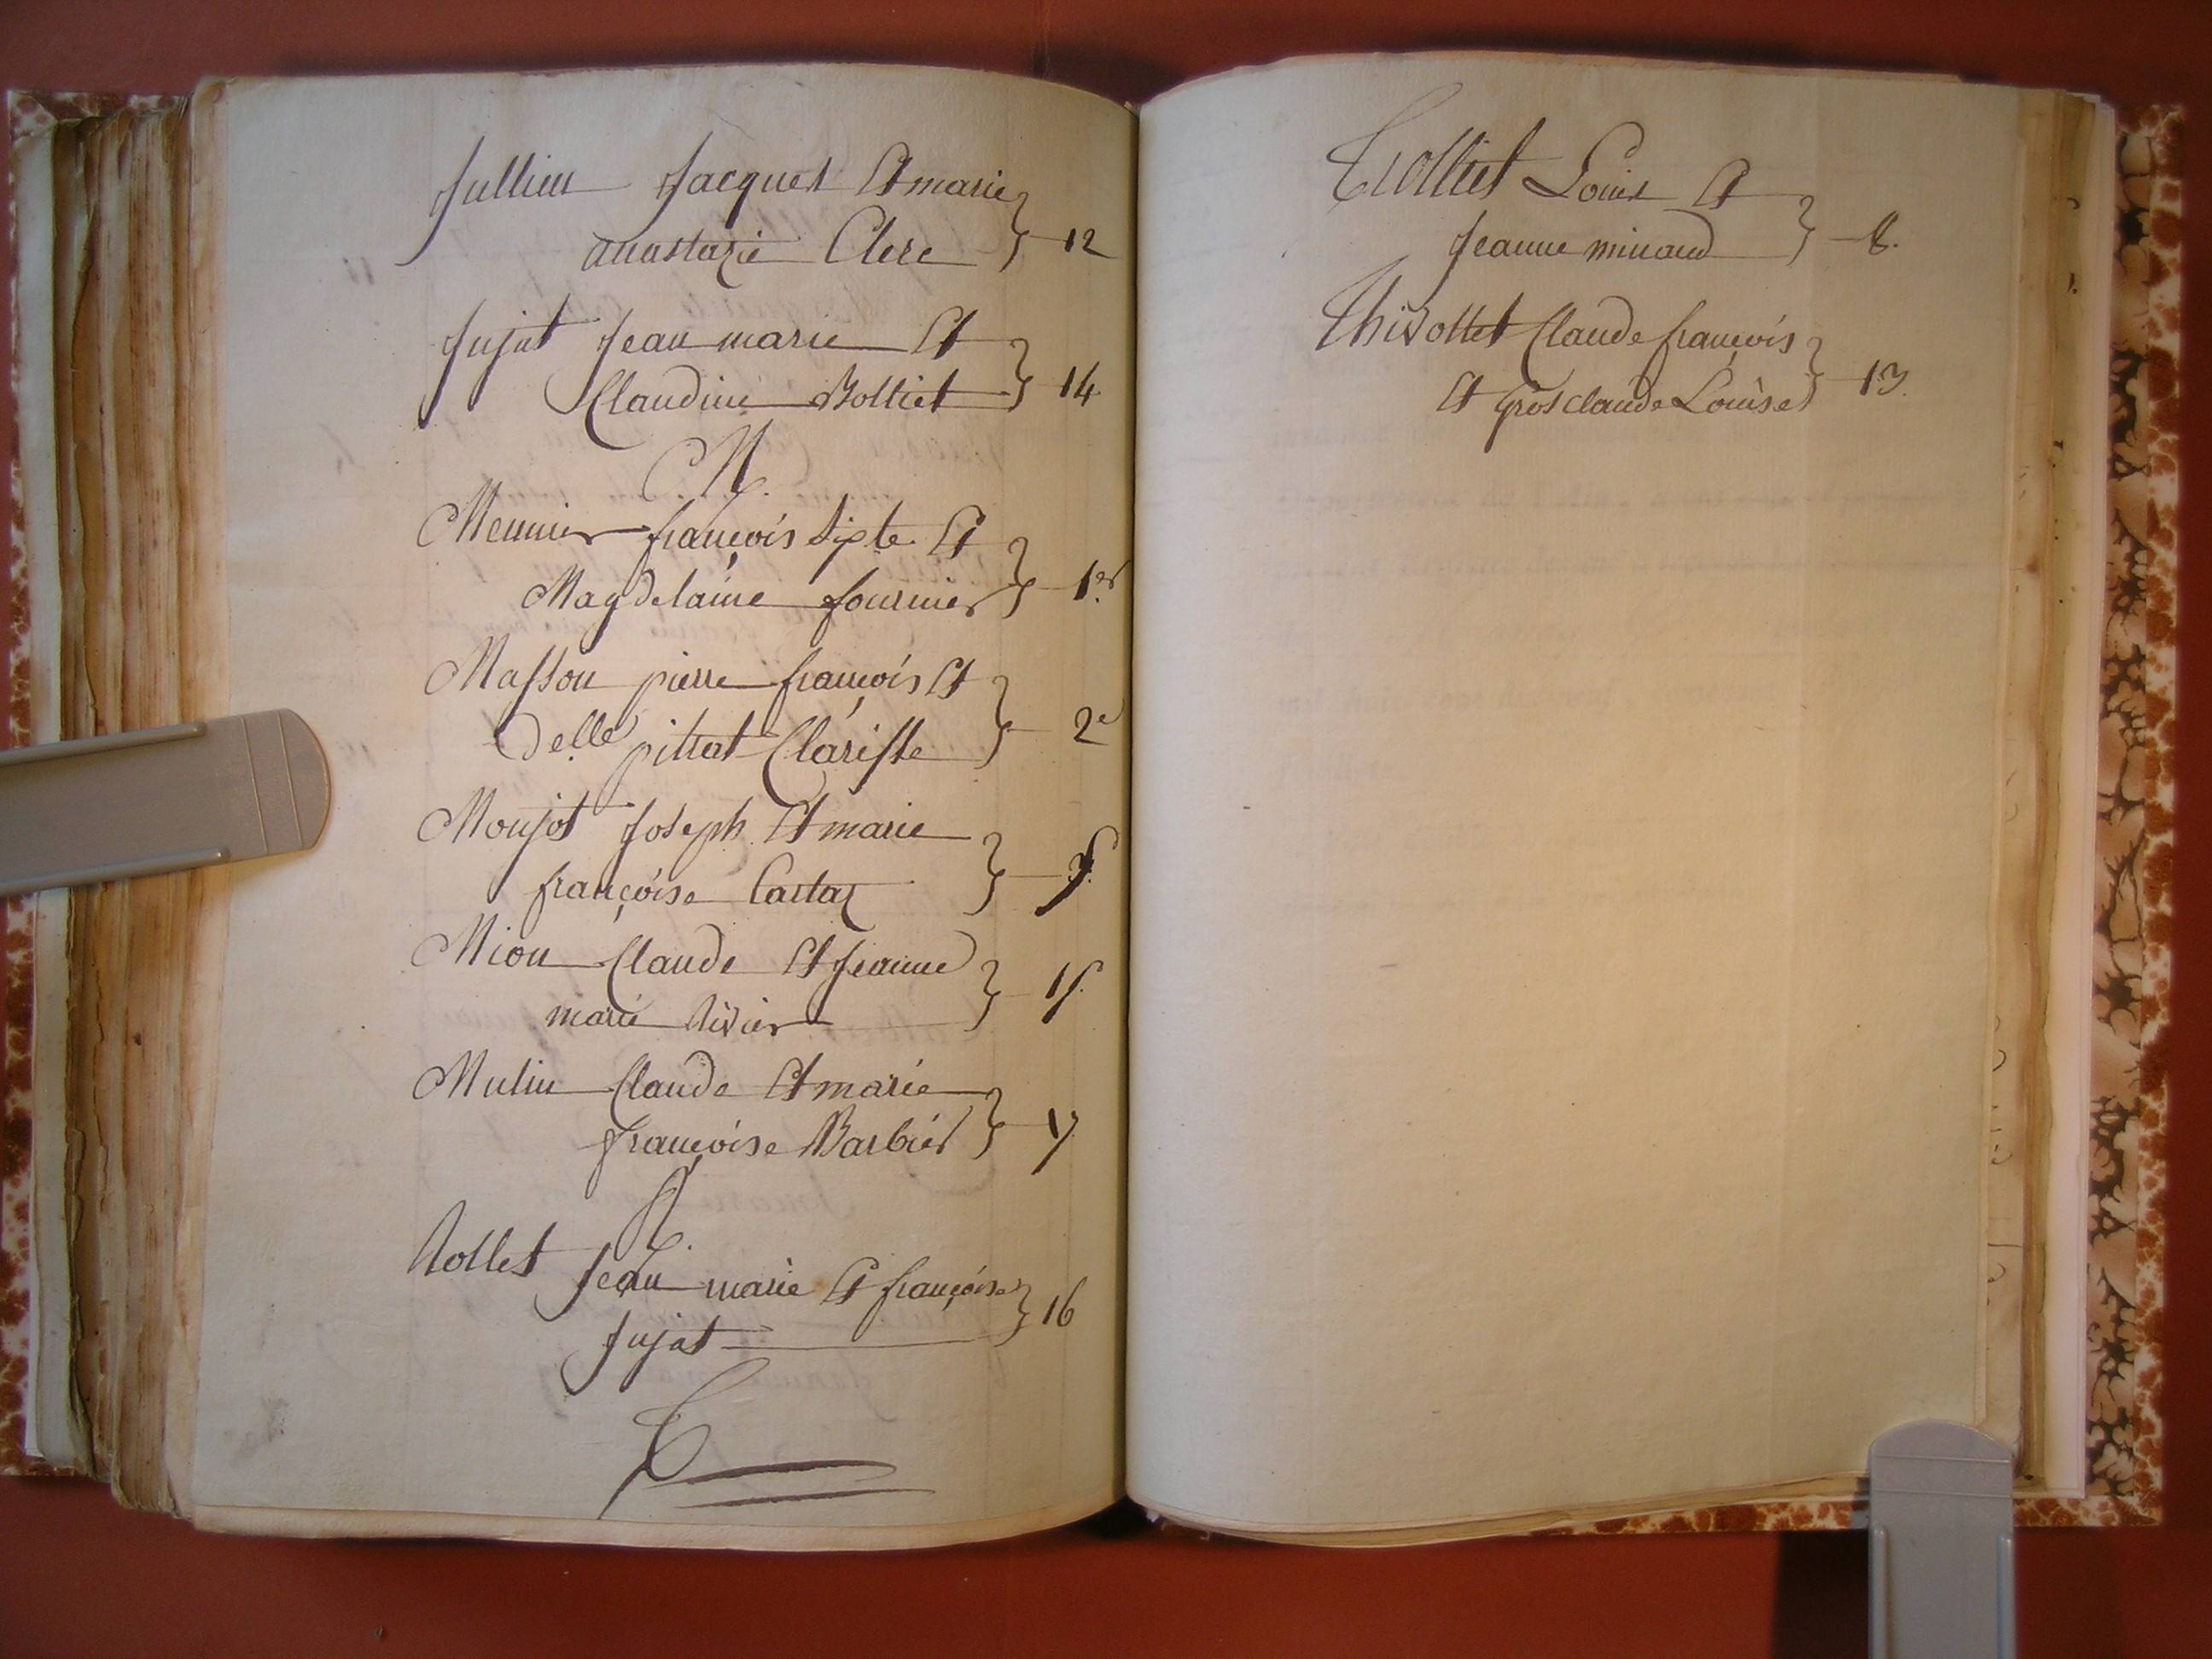 Jullien Jacques Et marie
anastazie Clerc } 12
Jujat Jean marie Et
Claudine Bolliet } 14
M.
Meunier françois Sixte Et
Magdelaine fournier } 1er
Masson pierre françois Et
Delle pittat Clarisse } 2e
Monjot Joseph Et marie
françoise Cartaz }
Mion Claude Et Jeanne
marie Rivier } 15.
Mulin Claude Et marie
françoise Barbier } 17
R.
Rollet Jean marie Et françoise
Jujat } 16
T
Trolliet Louis Et
Jeanne minaud } 8.
Thivollet Claude françois
Et grosclaude Louise } 13.